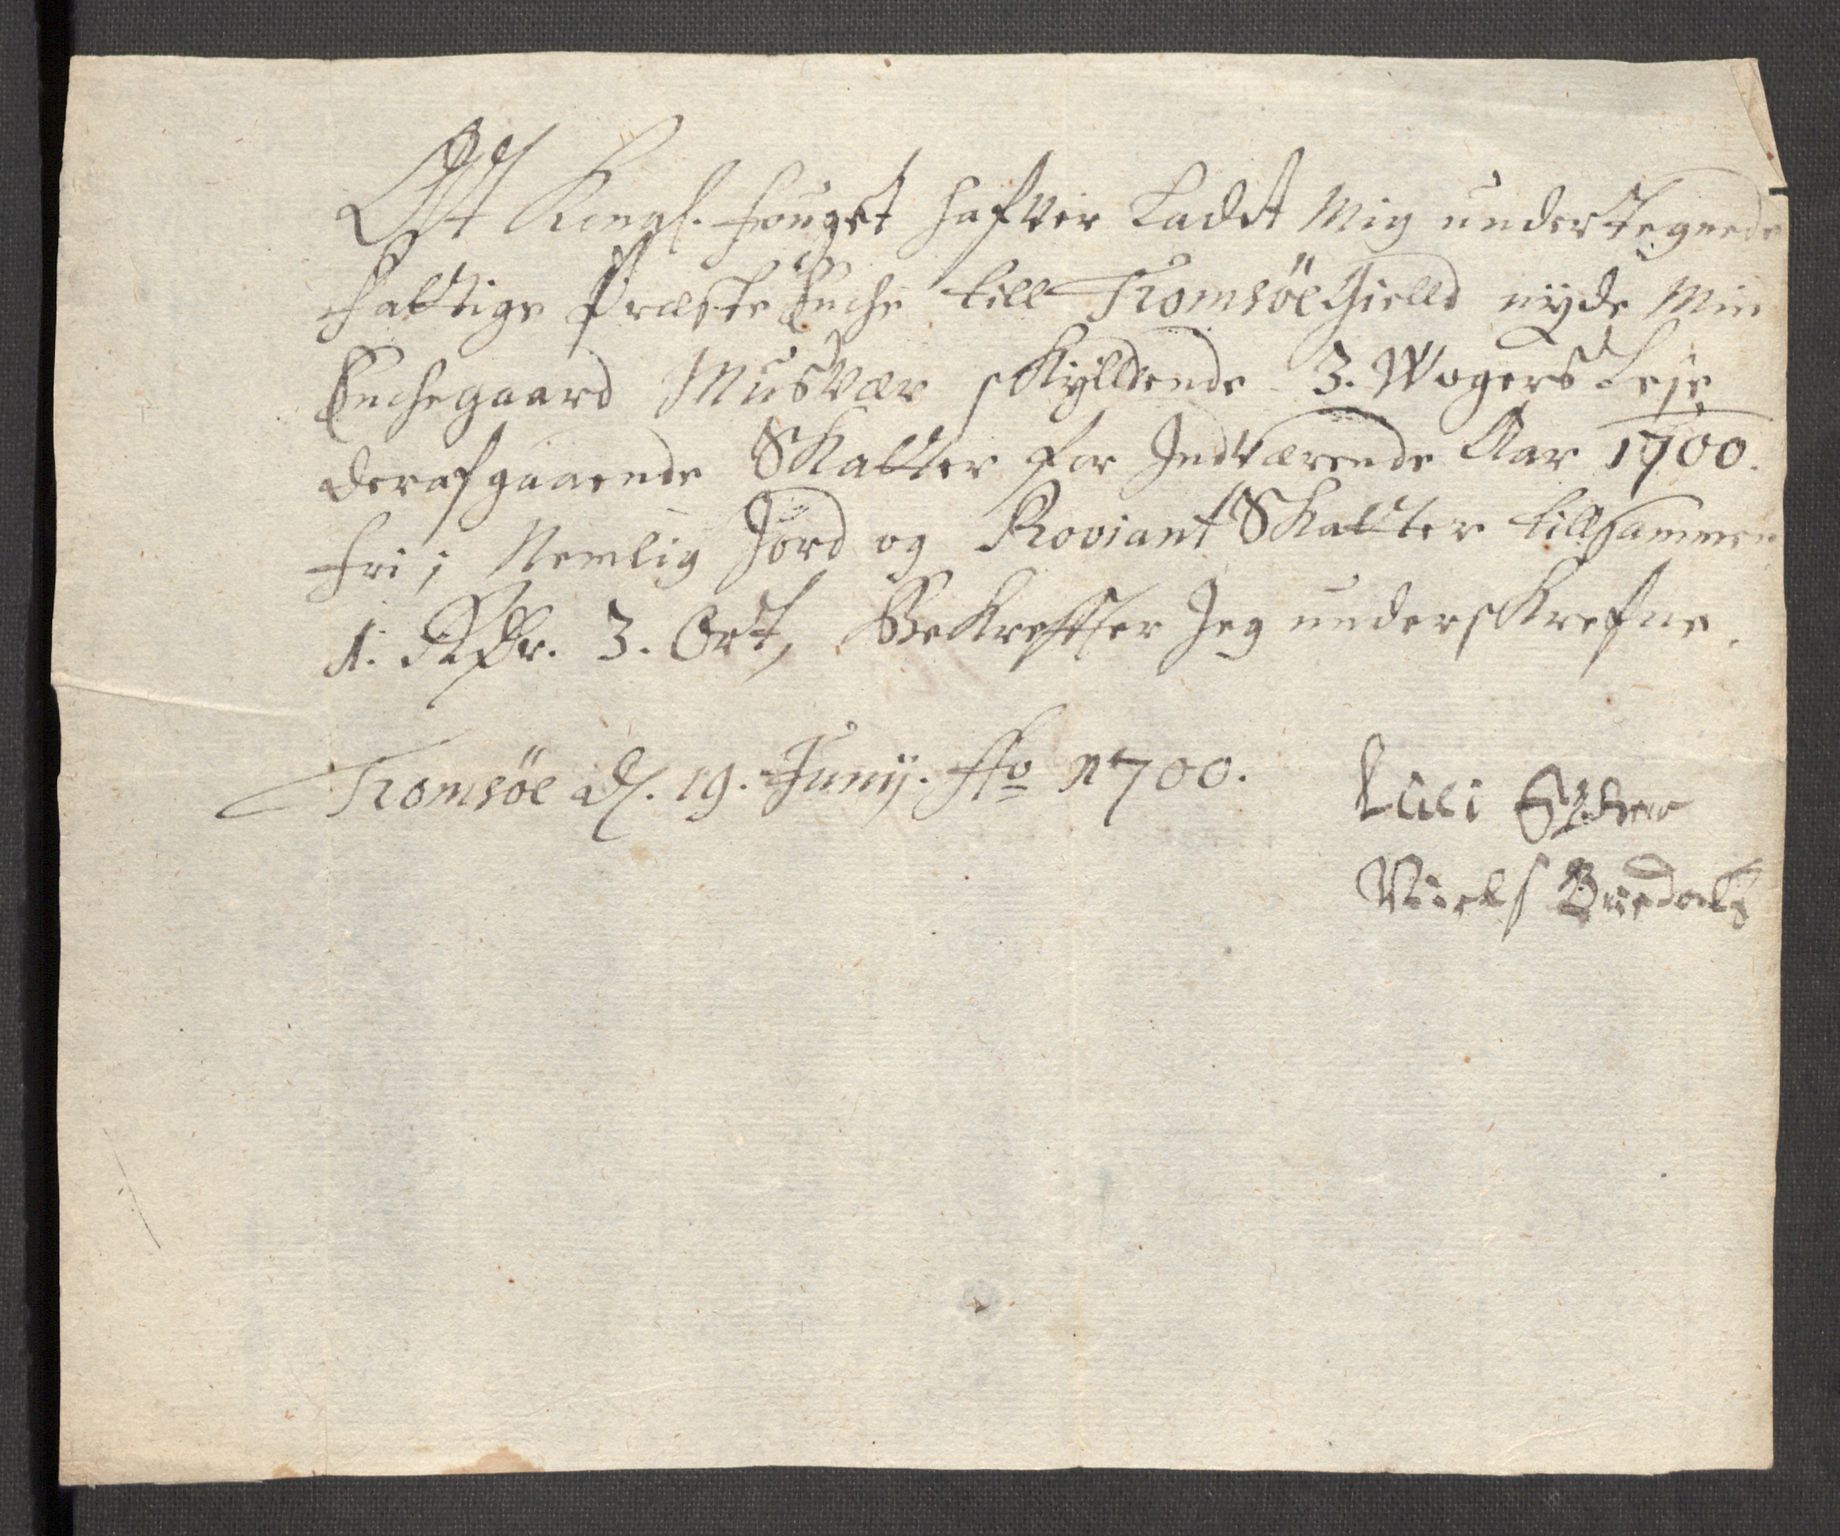 Att Kongl. fouget hafver Ladet Mig undertegnede
fattige Præste Enche till Tromsöe Gielld nyde Min
Enchegaard Musvær skylldende 3. Wogers Leje
derafgaaende Skatter for Indværende Aar 1700.
fri; Nemlig Jord og Roviant Skatter tillsammen
1. Rdr. 3. Ort, Bekreffter Jeg underskrefne.
Tromsöe d. 19. Junij. Ao 1700.
Niels